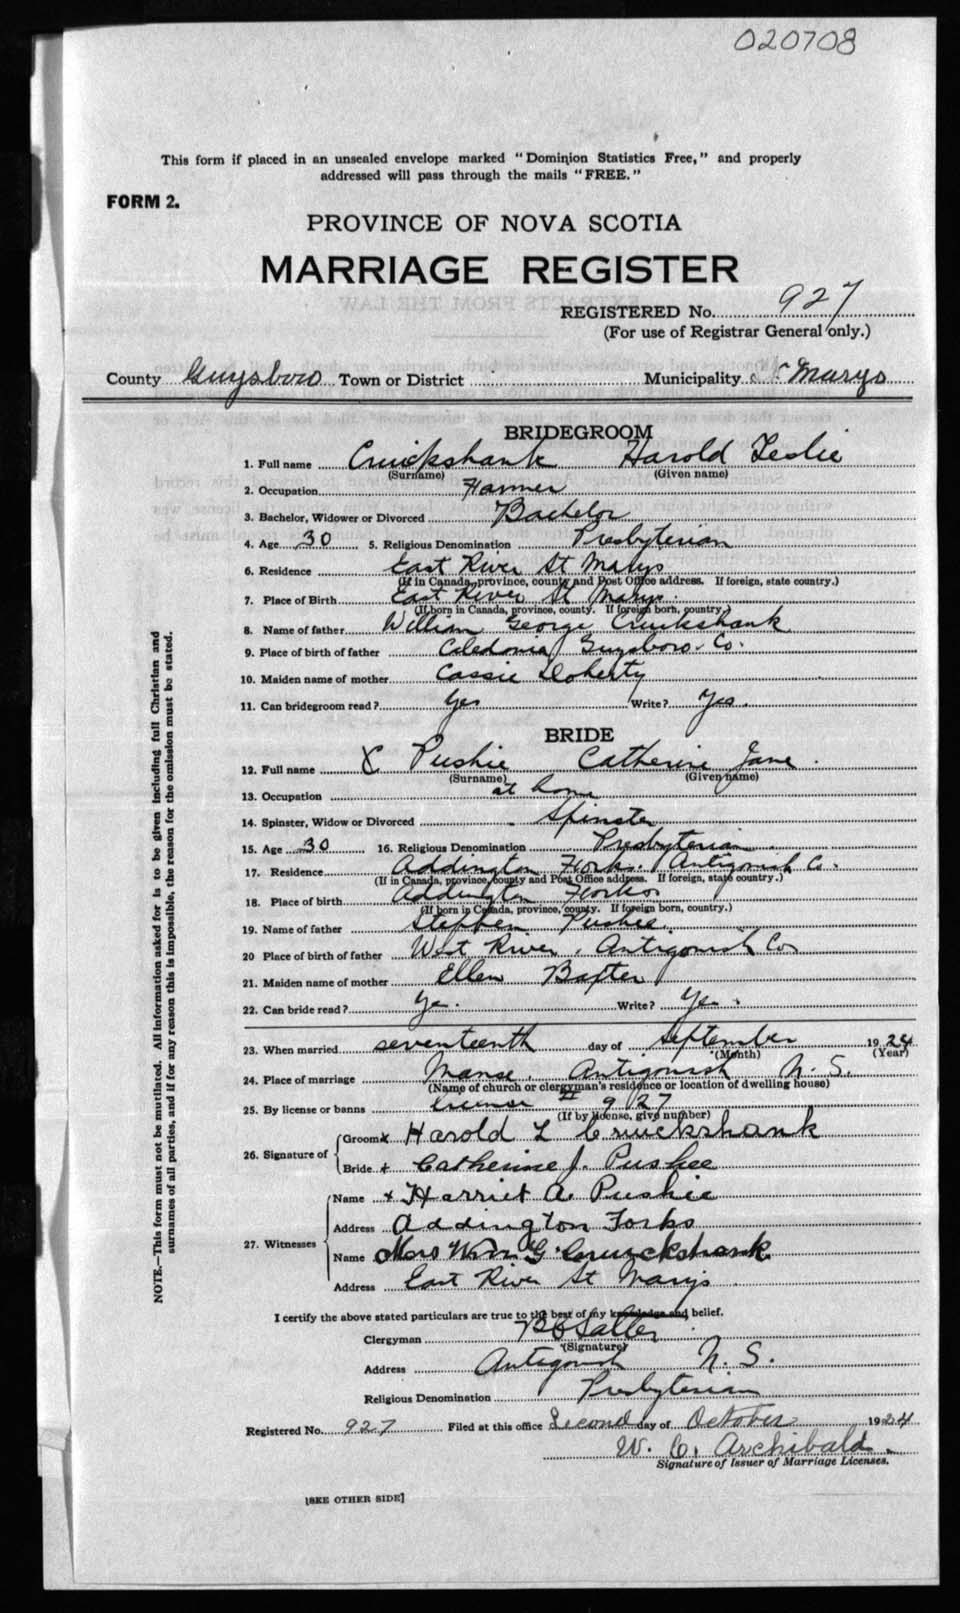 020708
This form if placed in an unsealed envelope marked "Dominion Statistics Free," and properly
addressed will pass through the mails "FREE."
FORM 2.
PROVINCE OF NOVA SCOTIA
MARRIAGE REGISTER
REGISTERED No. 927
(For use of Registrar General only.)
County Guysboro Town or District Municipality St Marys
BRIDEGROOM
1. Full name Cruickshank Harold Leslie
(Surname) (Given name)
2. Occupation Farmer
3. Bachelor, Widower or Divorced Bachelor
4. Age 30 5. Religious Denomination Presbyterian
6. Residence East River St Marys
(If in Canada, province, county and Post Office address. If foreign, state country.)
7. Place of Birth East River St Marys.
(If born in Canada, province, county. If foreign born, country.)
8. Name of father William George Cruickshank
9. Place of birth of father Caledonia Guysboro Co.
10. Maiden name of mother Cassie Doherty
11. Can bridegroom read? Yes Write? Yes.
BRIDE
12. Full name X Pushie Catherine Jane.
(Surname) (Given name)
13. Occupation at home
14. Spinster, Widow or Divorced Spinster
15. Age 30 16. Religious Denomination Presbyterian
17. Residence Addington Forks. Antigonish Co.
(If in Canada, province, county and Post Office address. If foreign, state country.)
18. Place of birth Addington Forks
(If born in Canada, province, county. If foreign born, country.)
19. Name of father Stephen Pushie.
20 Place of birth of father West River, Antigonish Co
21. Maiden name of mother Ellen Baxter
22. Can bride read? Yes. Write? Yes.
23. When married seventeenth day of September 1924
(Month) (Year)
24. Place of marriage Manse, Antigonish N. S.
(Name of church or clergyman's residence or location of dwelling house)
25. By license or banns License # 927
(If by license, give number)
26. Signature of Groom x Harold L Cruickshank
Bride x Catherine J. Pushee
27. Witnesses Name x Harriet A. Pushie
Address Addington Forks
Name Mrs Wm G Cruickshank
Address East River St Marys
I certify the above stated particulars are true to the best of my knowledge and belief.
Clergyman
(Signature)
Address Antigonish N. S.
Religious Denomination Presbyterian
Registered No. 927 Filed at this office Second day of October 1924
W. C. Archibald.
Signature of Issuer of Marriage Licenses.
[SEE OTHER SIDE]
NOTE.—This form must not be mutilated. All information asked for is to be given including full Christian and
surnames of all parties, and if for any reason this is impossible, the reason for the omission must be stated.